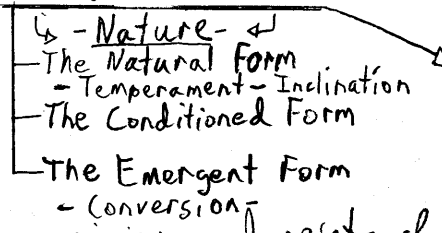 - Nature -
The Natural Form
- Temperament - Inclination
The Conditioned Form
The Emergent Form
- Conversion -